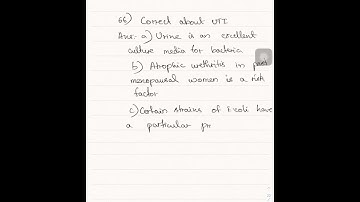 66) Correct about UTI
Ans:- a) Urine is an excellent
culture media for bacteria
b) Atrophic urethritis in post
menopausal women is a risk
factor
c) Certain strains of E.coli have
a particular pr